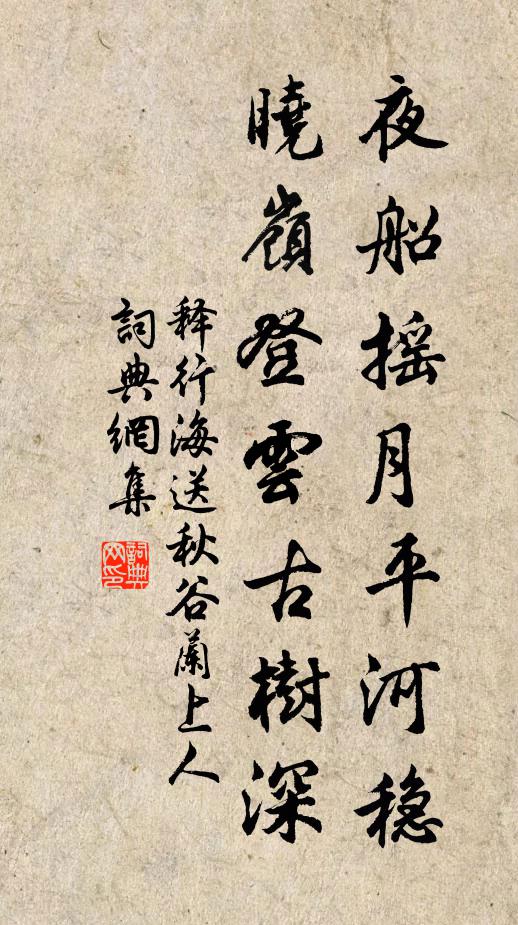 夜船摇月平河稳
曉嶺登雲古樹深
释行海送秋谷蘭上人
詞典網集
詞典
网印